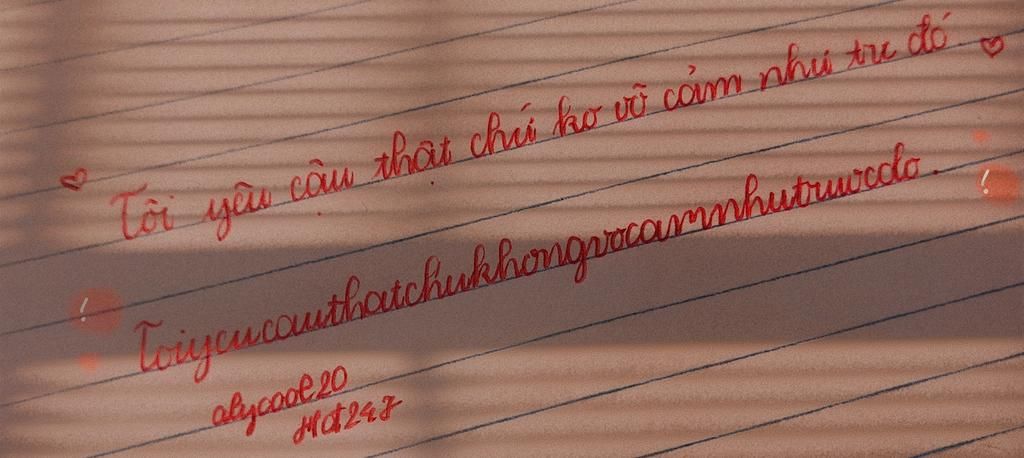 Tôi yêu cậu thật chứ ko vô cảm như trc đó
Toiyeucauthatchukhongvocamnhutruocdo.
alycool20
Hd247